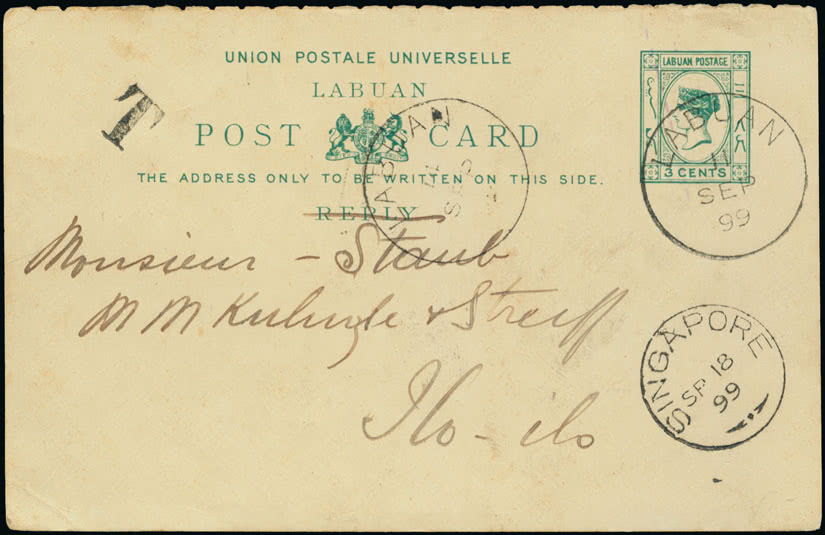 UNION POSTALE UNIVERSELLE
LABUAN
POST CARD
THE ADDRESS ONLY TO BE WRITTEN ON THIS SIDE.
REPLY
T
LABUAN POSTAGE
3 CENTS
LABUAN
11
SEP
99
LABUAN
11
SEP
Monsieur - Staub
M M & Streiff
Ilo-ilo
SINGAPORE
SP 18
99